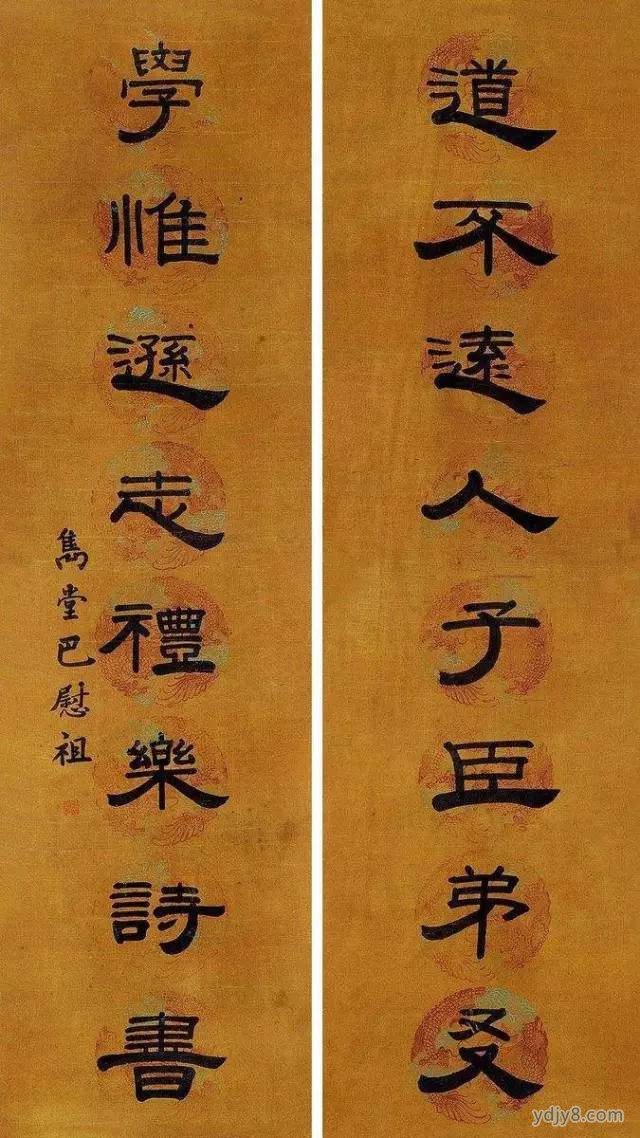 道不遠人子臣弟友
學惟遜志禮樂詩書
雋堂巴慰祖
ydjy8.com